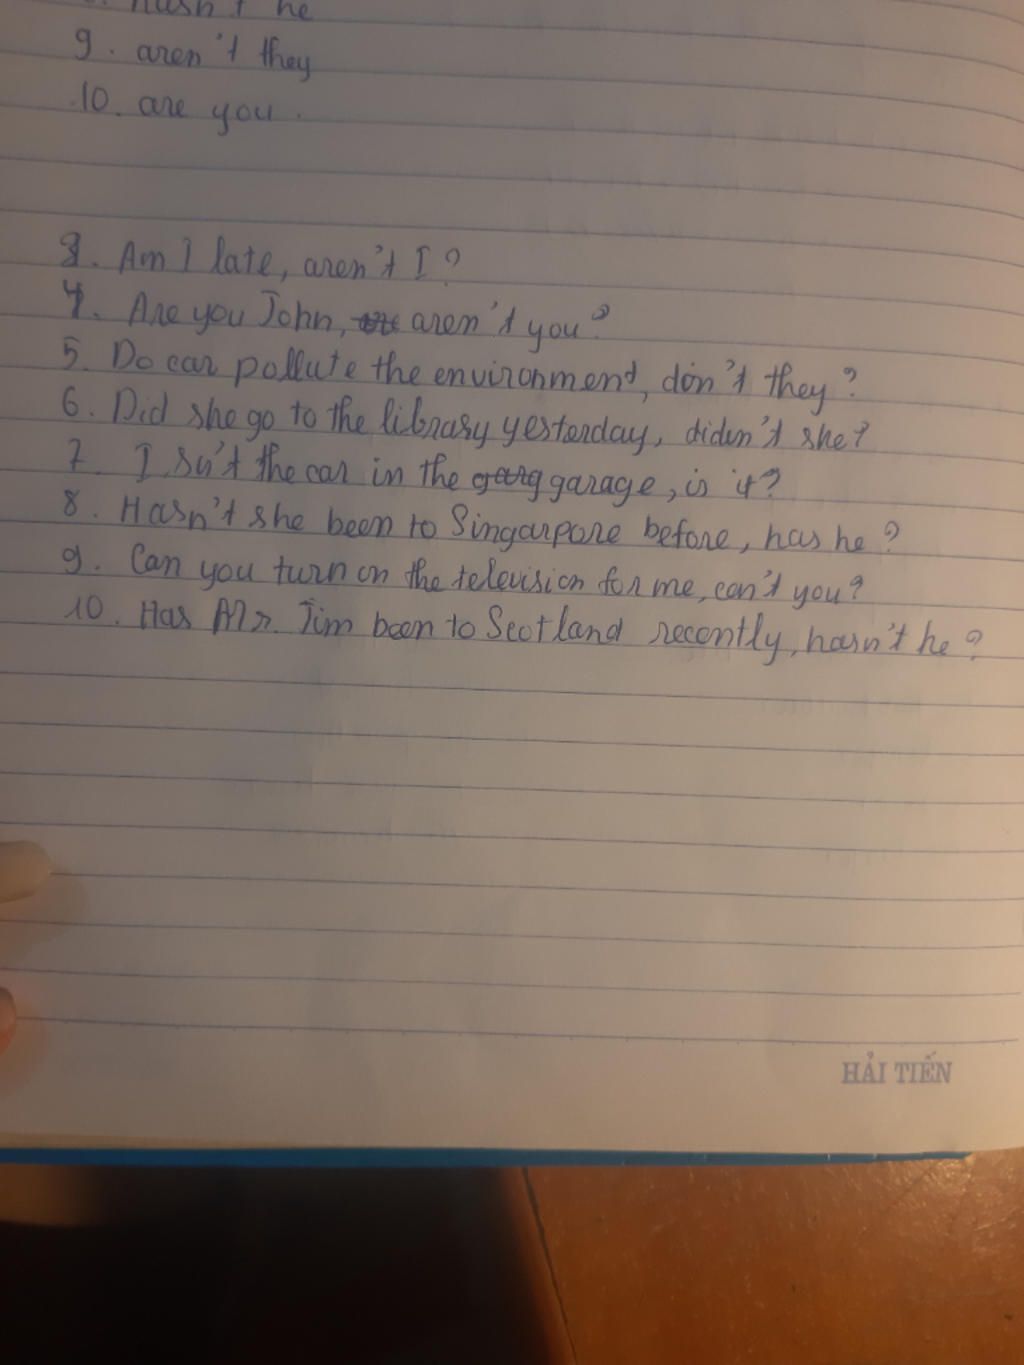 hasn't he
9. aren't they
10. are you.
3. Am I late, aren't I?
4. Are you John, aren't you?
5. Do car pollute the environment, don't they?
6. Did she go to the library yesterday, diden't she?
7. Isn't the car in the garage, is it?
8. Hasn't she been to Singarpore before, has he?
9. Can you turn on the television for me, can't you?
10. Has Mr. Jim been to Scotland recently, hasn't he?
HẢI TIẾN